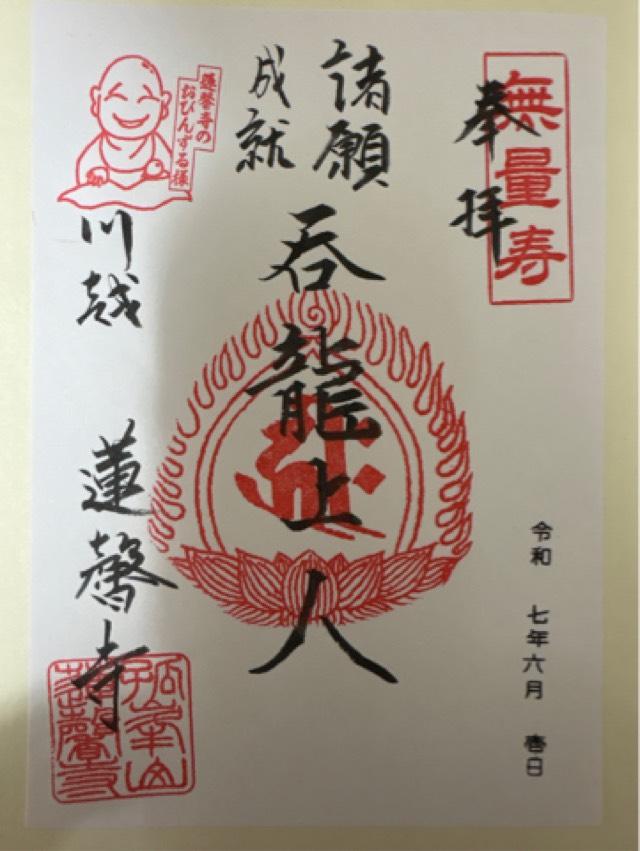 無量寿
奉拝
令和 七年六月 壱日
諸願
成就
呑龍上人
蓮馨寺の
おびんずる様
川越
蓮馨寺
孤峯山
蓮馨寺